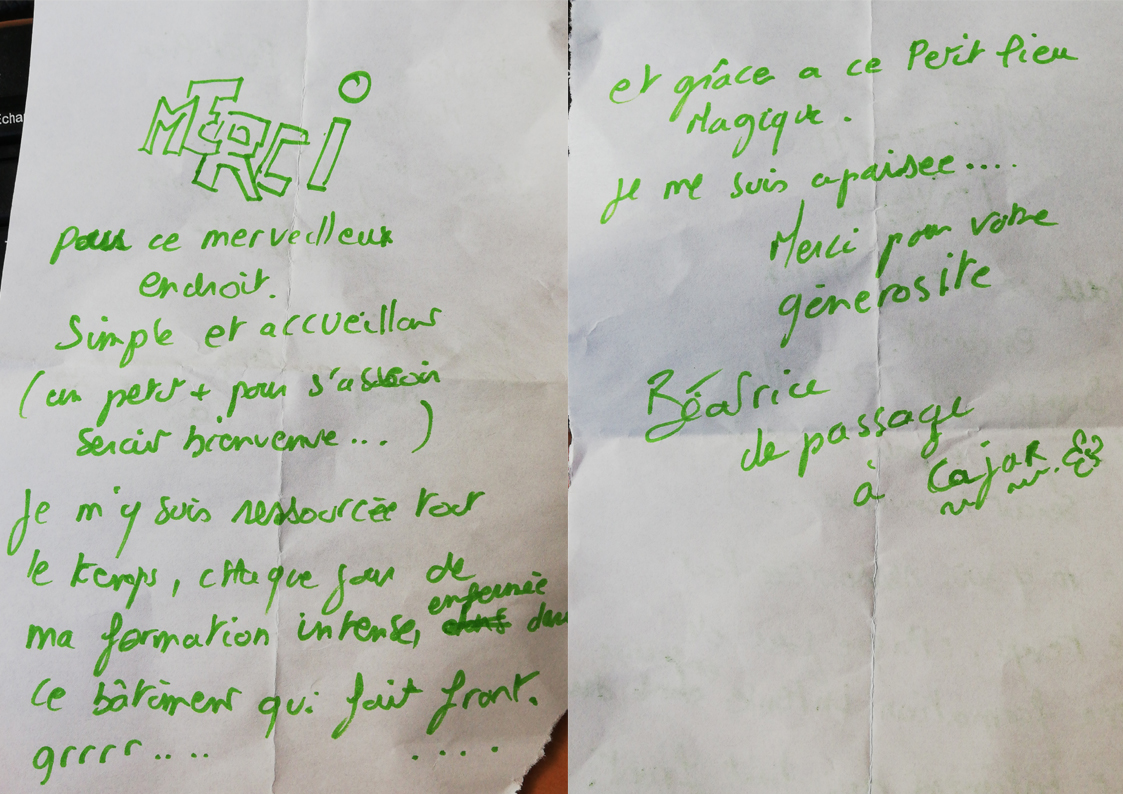 MERCI
pour ce merveilleux
endroit.
Simple et accueillant
(un petit + pour s'asseoir
serait bienvenue... )
Je m'y suis ressourcée tout
le temps, chaque jour de
ma formation intense, enfermée dans
ce bâtiment qui fait front.
grrrr.... ....
et grâce a ce Petit lieu
Magique.
Je me suis apaisée....
Merci pour votre
génerosite
Béatrice
de passage
à Cajar.